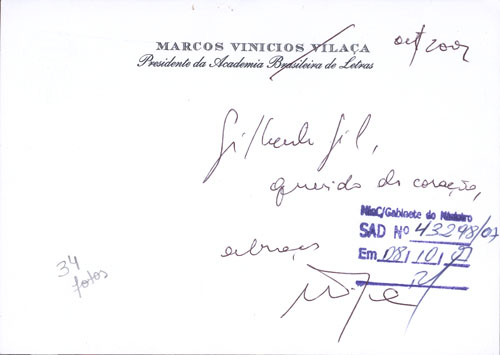 MARCOS VINICIOS VILAÇA
Presidente da Academia Brasileira de Letras
out/2007
Gilberto Gil,
querido do coração,
MinC/Gabinete do Ministro
SAD Nº 43298/07
Em 08/10/07
abraços
34
fotos